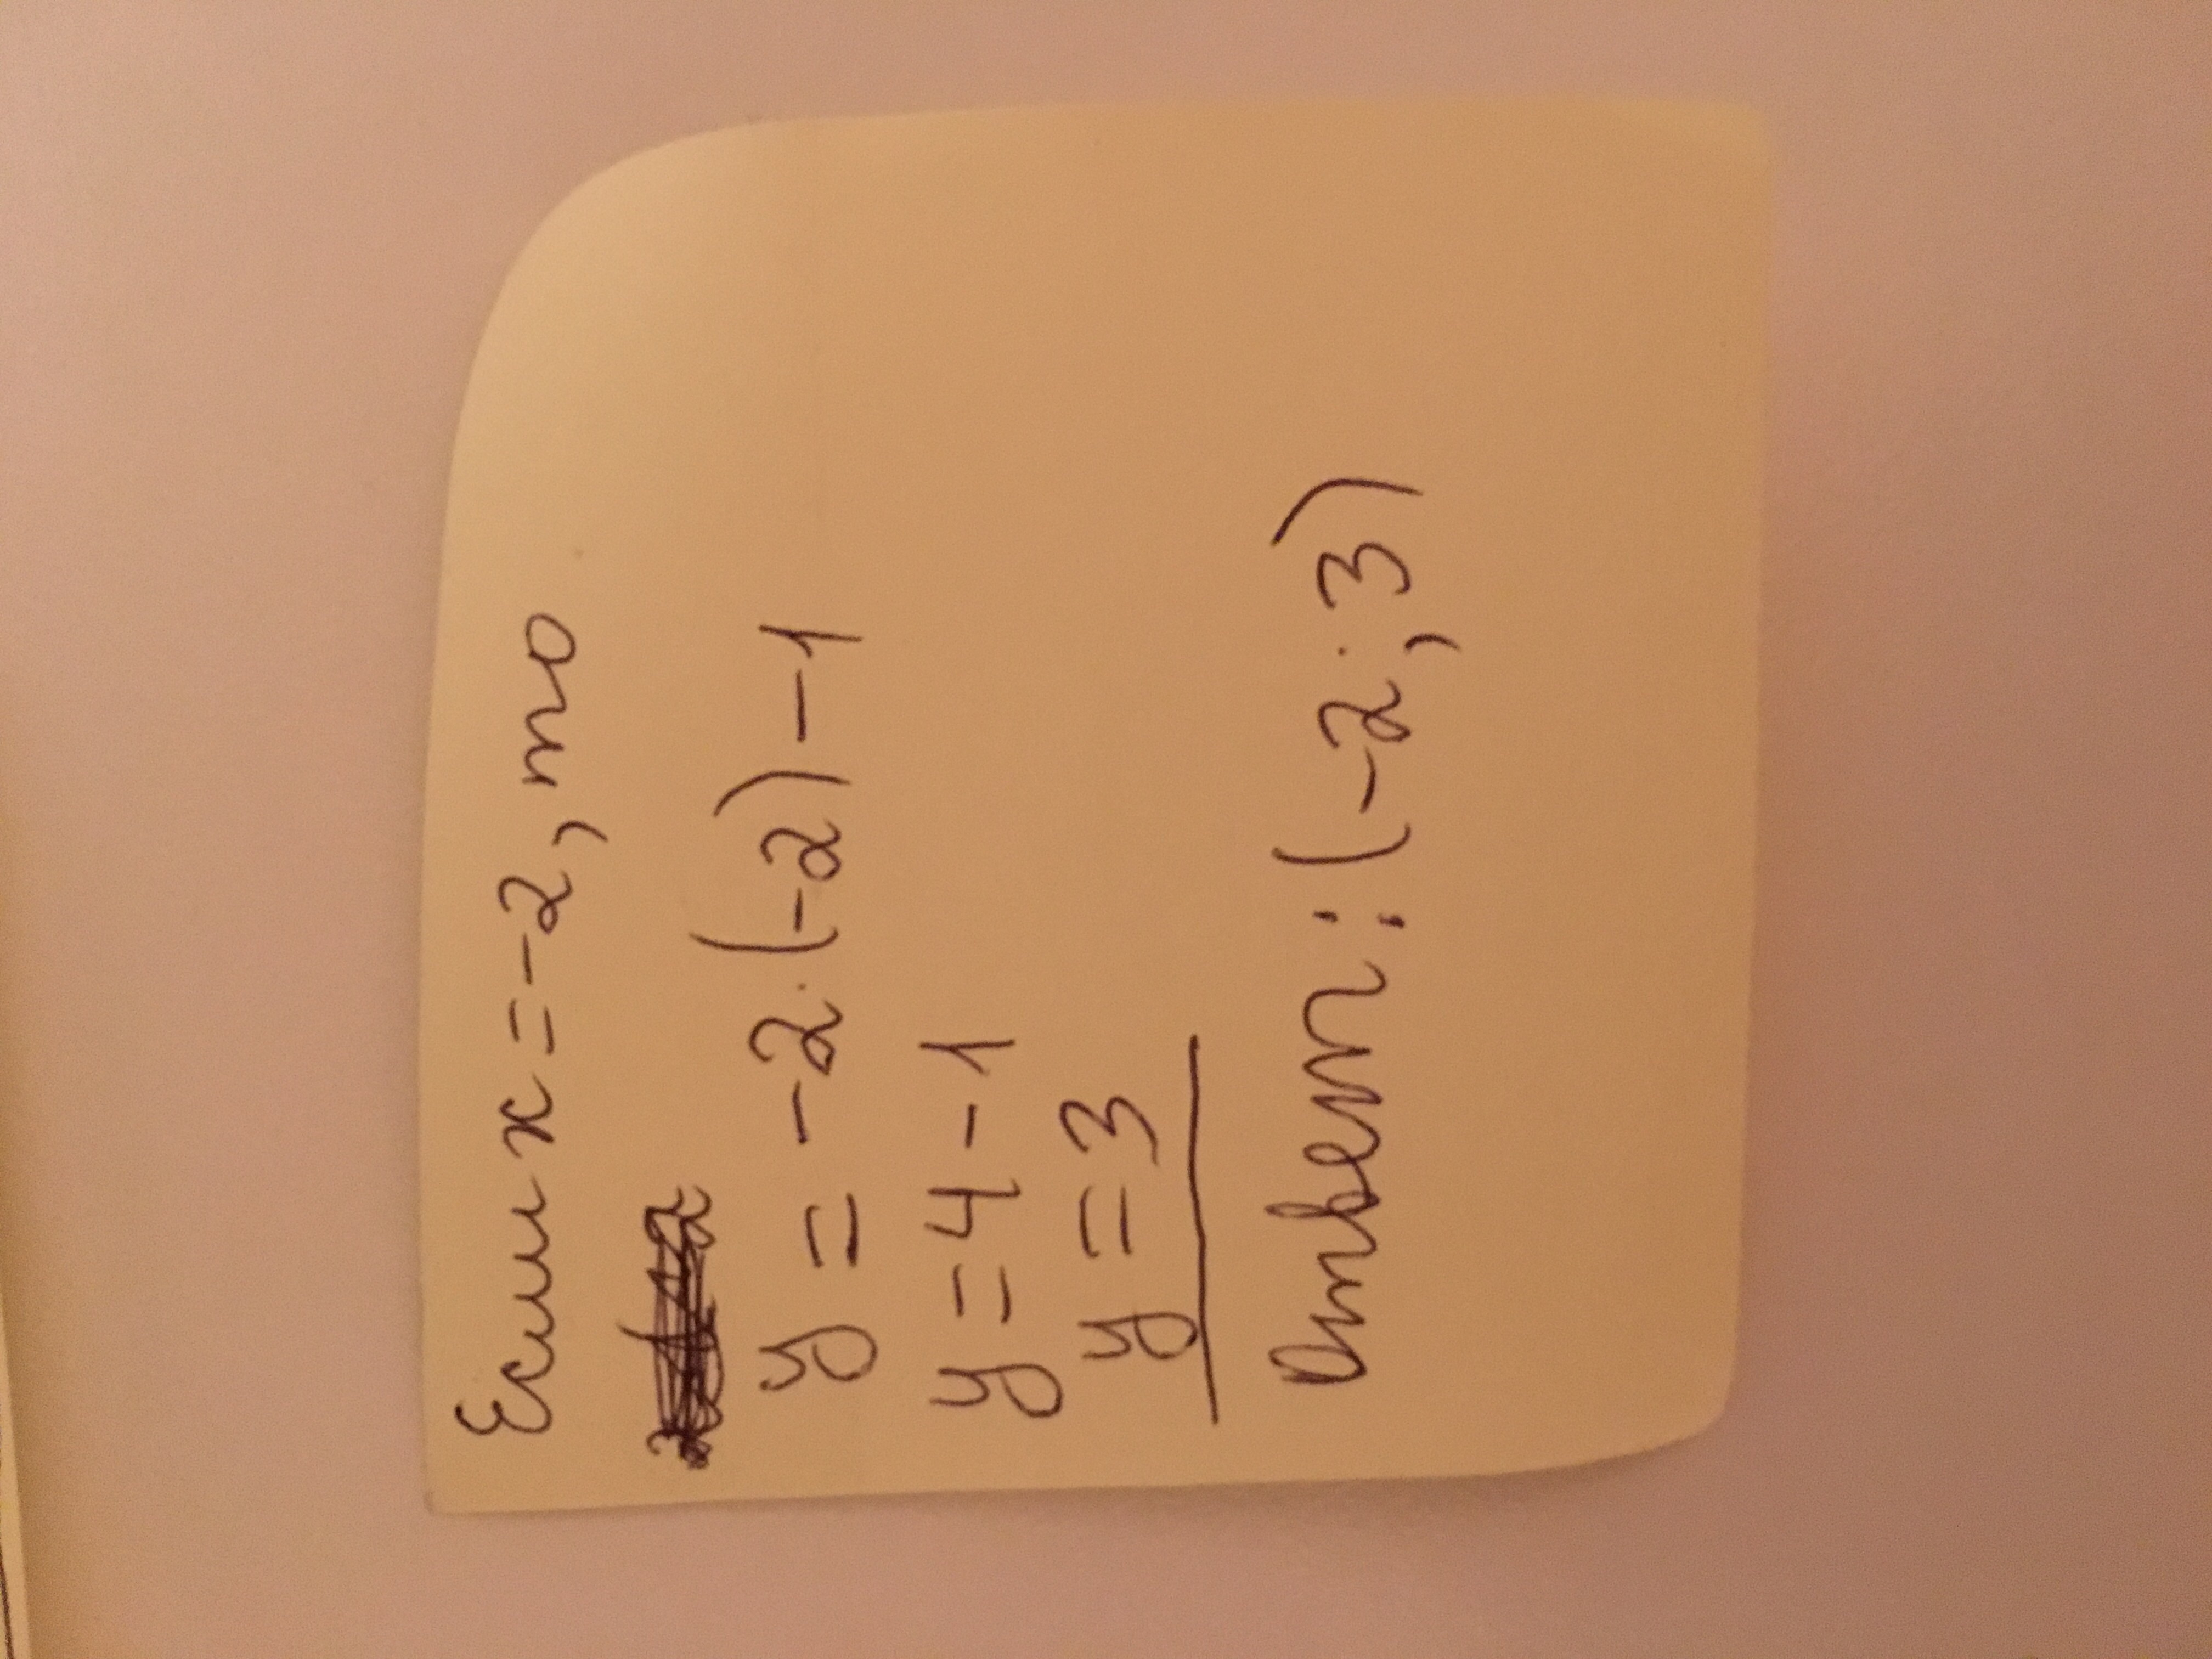 Если x = -2, то
y = -2·(-2) - 1
y = 4 - 1
y = 3
Ответ: (-2; 3)